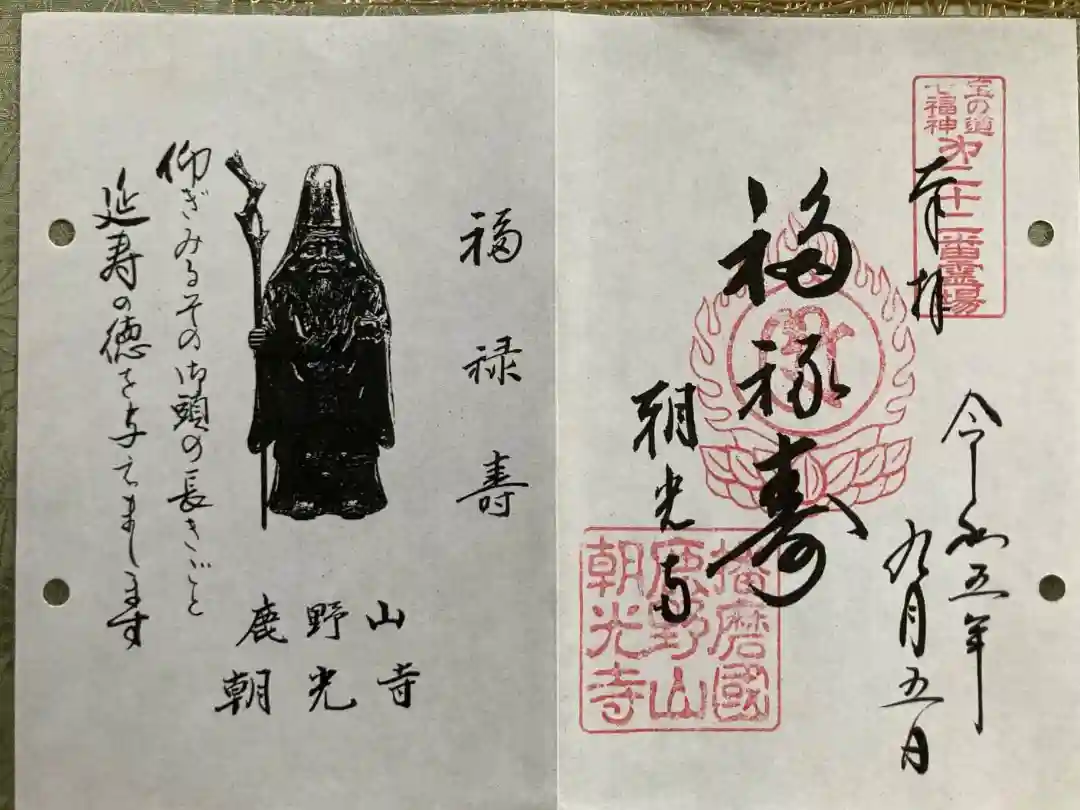 宝の道
七福神
㐧二十二番霊場
奉拝
令和五年
九月五日
福禄寿
朝光寺
播磨國
鹿野山
朝光寺
福禄寿
仰ぎみるその御頭の長きごと
延寿の徳を与えまします
鹿野山
朝光寺